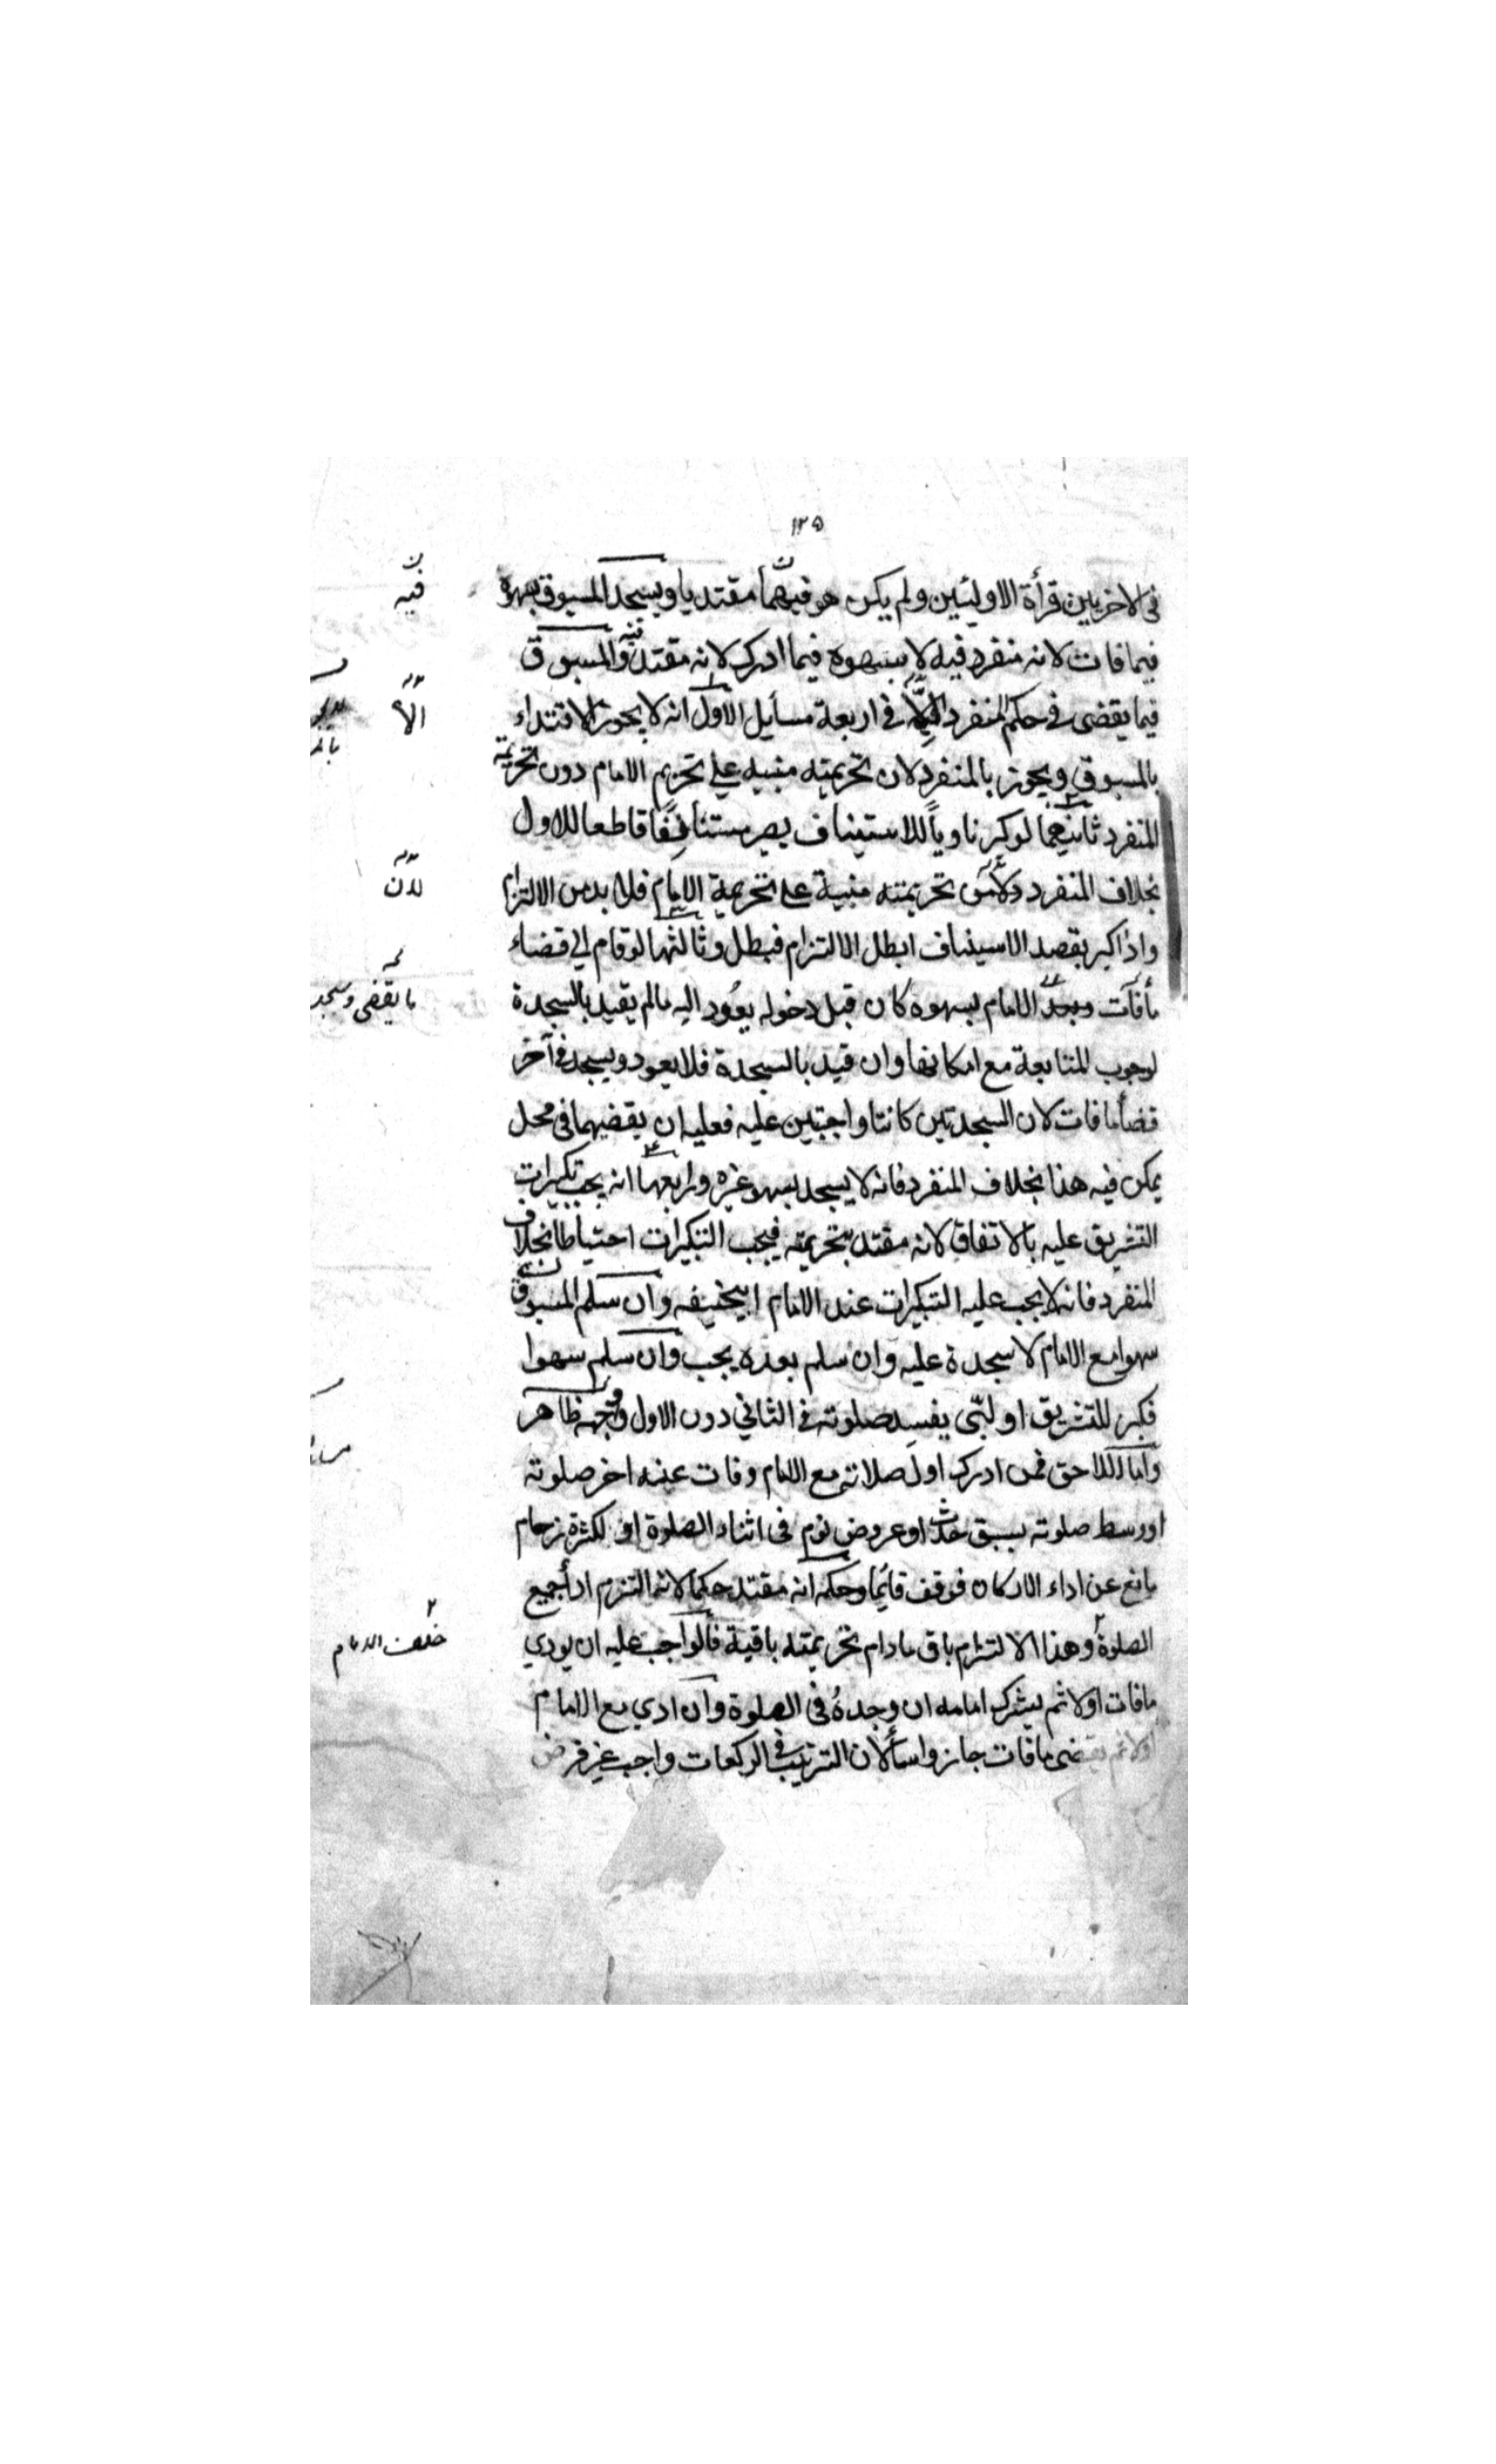 ١٢٥
فى الاخريين قرأة الاوليين ولم يكن هو فيهما مقتديا ويسجد المسبوق بسهوه
فيما فات لانه منفرد فيه لا بسهوه فيما ادرك لانه مقتد فيه والمسبوق
فيما يقضى فى حكم المنفرد الا فى اربعة مسأيل الاول انه لا يجوز الاقتداء
بالمسبوق ويجوز بالمنفرد لان تحريمته مبنيه على تحريم الامام دون تحريمة
المنفرد ثانيهما لو كبر ناوياً للاستيناف يصر مستنأنفًا قاطعا للاول
بخلاف المنفرد لان تحريمته مبنية على تحريمة الامام فلا بد من الالتزام
واذا كبر بقصد الاسيناف ابطل الالتزام فبطل وثالثها لو قام الى قضاء
مافات وسجد الامام لسهوه كان قبل دخوله يعُود اليه مالم يقيد بالسجدة
لوجوب المتابعة مع امكانها وان قيد بالسجدة فلا يعود ويسجد فى آخر
قضأ مافات لان السجدتين كانتا واجبتين عليه فعليه ان يقضيهما فى محل
يمكن فيه هذا بخلاف المنفرد فانه لا يسجد بسهو غيره ورابعها انه يجب تكبيرات
التشريق عليه بالاتفاق لانه مقتد بتحريمته فيجب التكبيرات احتياطا بخلاف
المنفرد فانه لا يجب عليه التكبيرات عند الامام ابيحنيفه وان سلم المسبوق
سهوا مع الامام لا سجدة عليه وان سلم بعده يجب وان سلم سهوا
فكبر للتشريق او لبّى يفسد صلوته فى الثاني دون الاول وجهه ظاهر
واما اللاحق فمن ادرك اول صلاته مع الامام وفات عنه اخر صلوته
او وسط صلوته بسبق حدث او عروض نوم فى اثناء الصلوة او لكثرة زحام
مانع عن اداء الاركان فوقف قائما وحكمه انه مقتد حكما لانه التزم ادأ جميع
الصلوة وهذا الالتزام باق مادام تحريمته باقية فالواجب عليه ان يودي
مافات اولا ثم يشرك امامه ان وجدهُ فى الصلوة وان ادي مع الامام
اولا ثم يقضى مافات جاز واسأ لان الترتيب فى الركعات واجب غير فرض
فيه
الا
لان
ما يقضى وسجد
خلف الامام